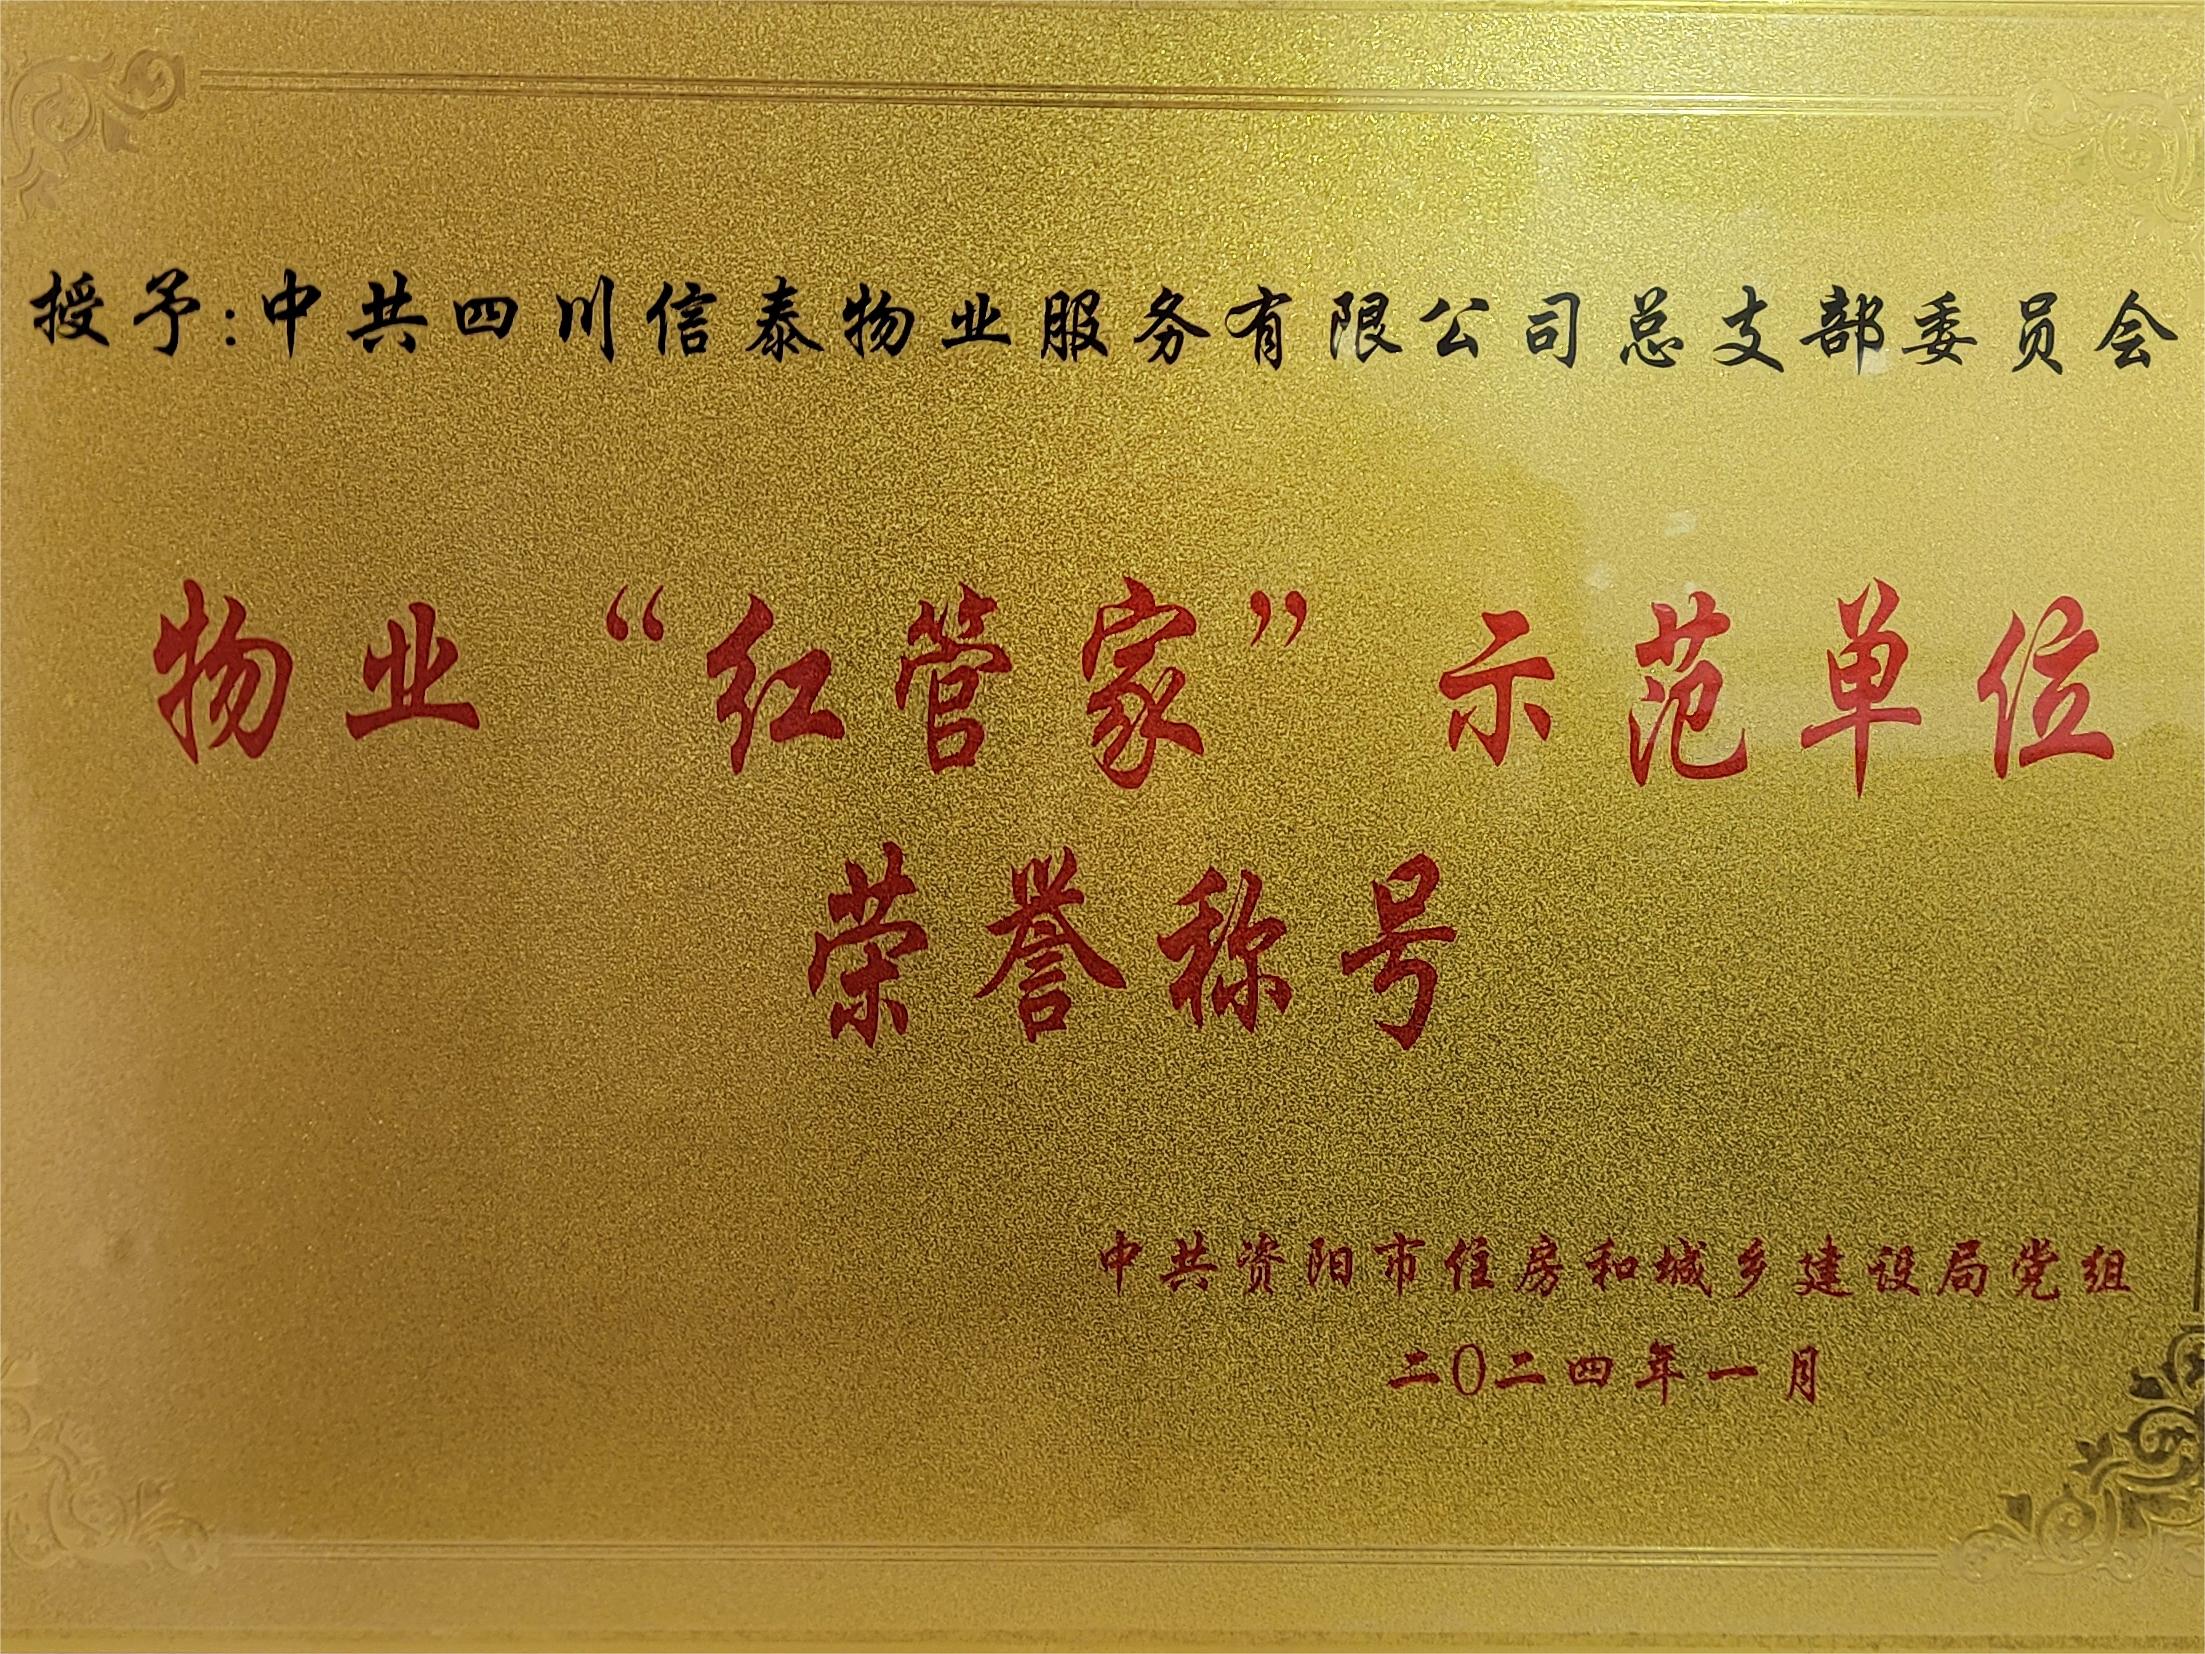 授予:中共四川信泰物业服务有限公司总支部委员会
物业“红管家”示范单位
荣誉称号
中共资阳市住房和城乡建设局党组
二0二四年一月